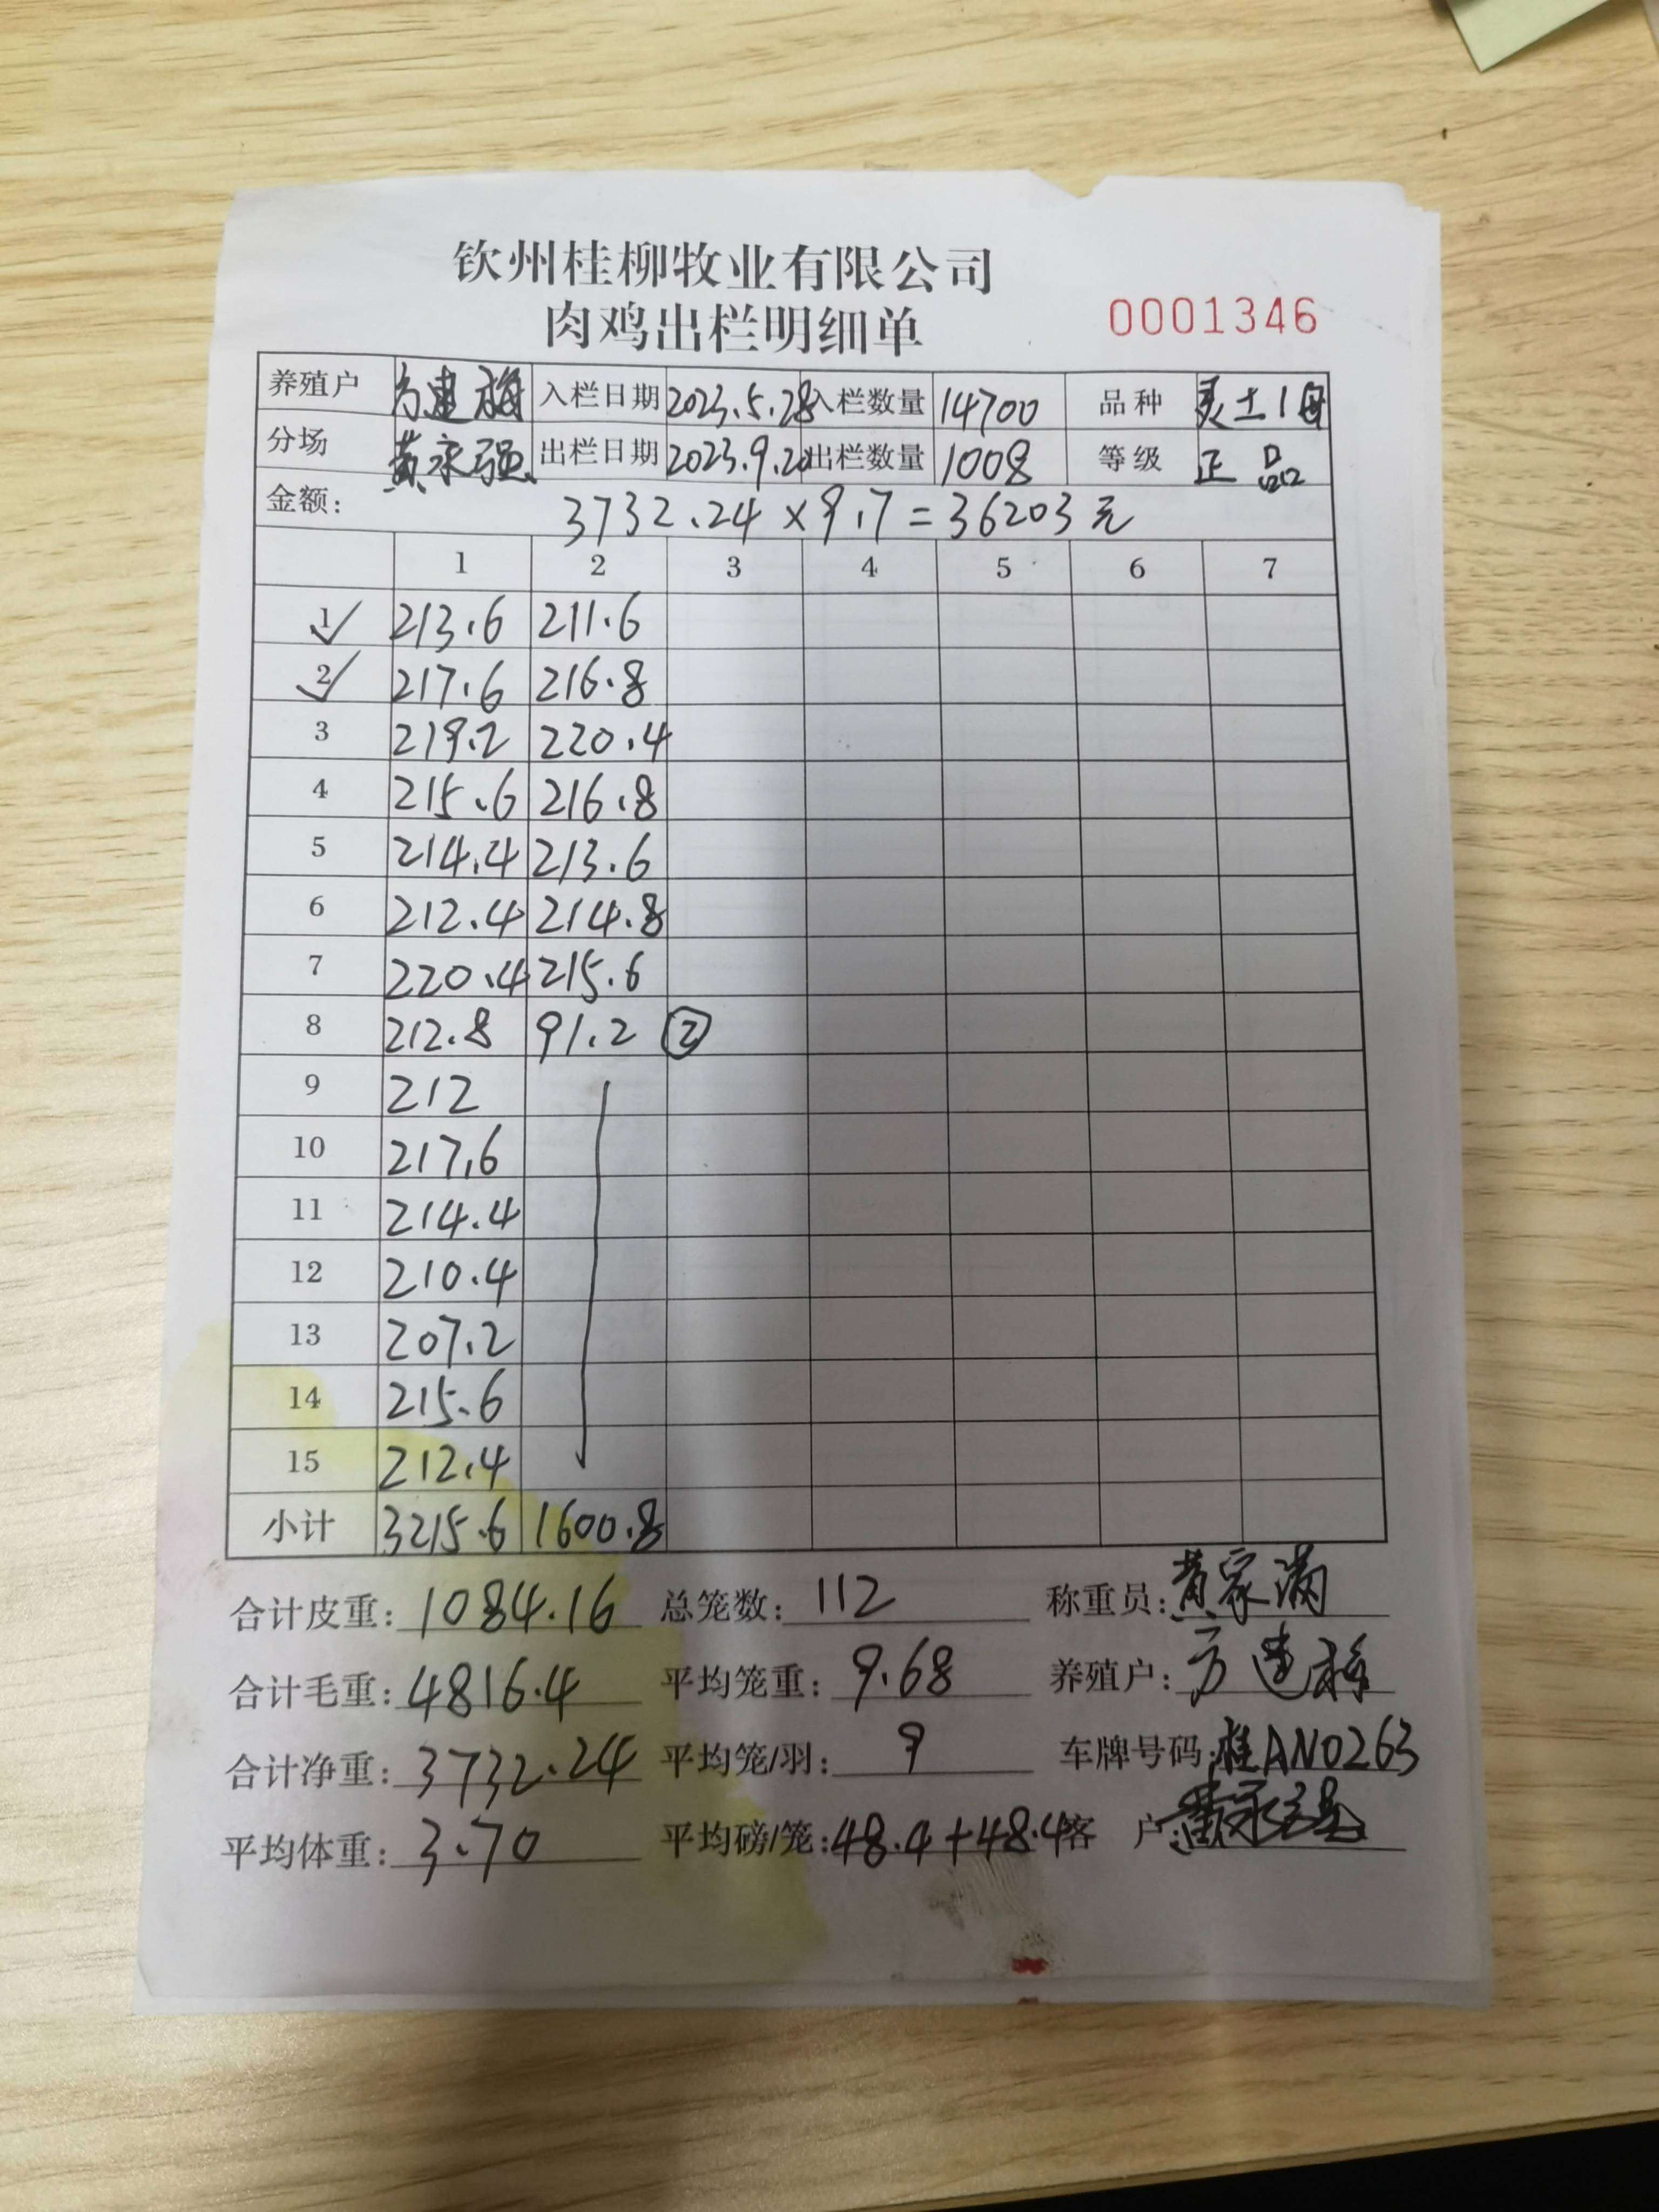 钦州桂柳牧业有限公司
肉鸡出栏明细单 0001346
养殖户 方建梅 入栏日期 2023.5.28 入栏数量 14700 品种 灵土1母
分场 黄永强 出栏日期 2023.9.20 出栏数量 1008 等级 正品
金额: 3732.24×9.7=36203元
1 2 3 4 5 6 7
1 213.6 211.6
2 217.6 216.8
3 219.2 220.4
4 215.6 216.8
5 214.4 213.6
6 212.4 214.8
7 220.4 215.6
8 212.8 91.2 ②
9 212
10 217.6
11 214.4
12 210.4
13 207.2
14 215.6
15 212.4
小计 3215.6 1600.8
合计皮重: 1084.16 总笼数: 112 称重员: 黄家满
合计毛重: 4816.4 平均笼重: 9.68 养殖户: 方建梅
合计净重: 3732.24 平均笼/羽: 9 车牌号码: 桂AN0263
平均体重: 3.70 平均磅/笼: 48.4+48.4 客 户: 黄永强